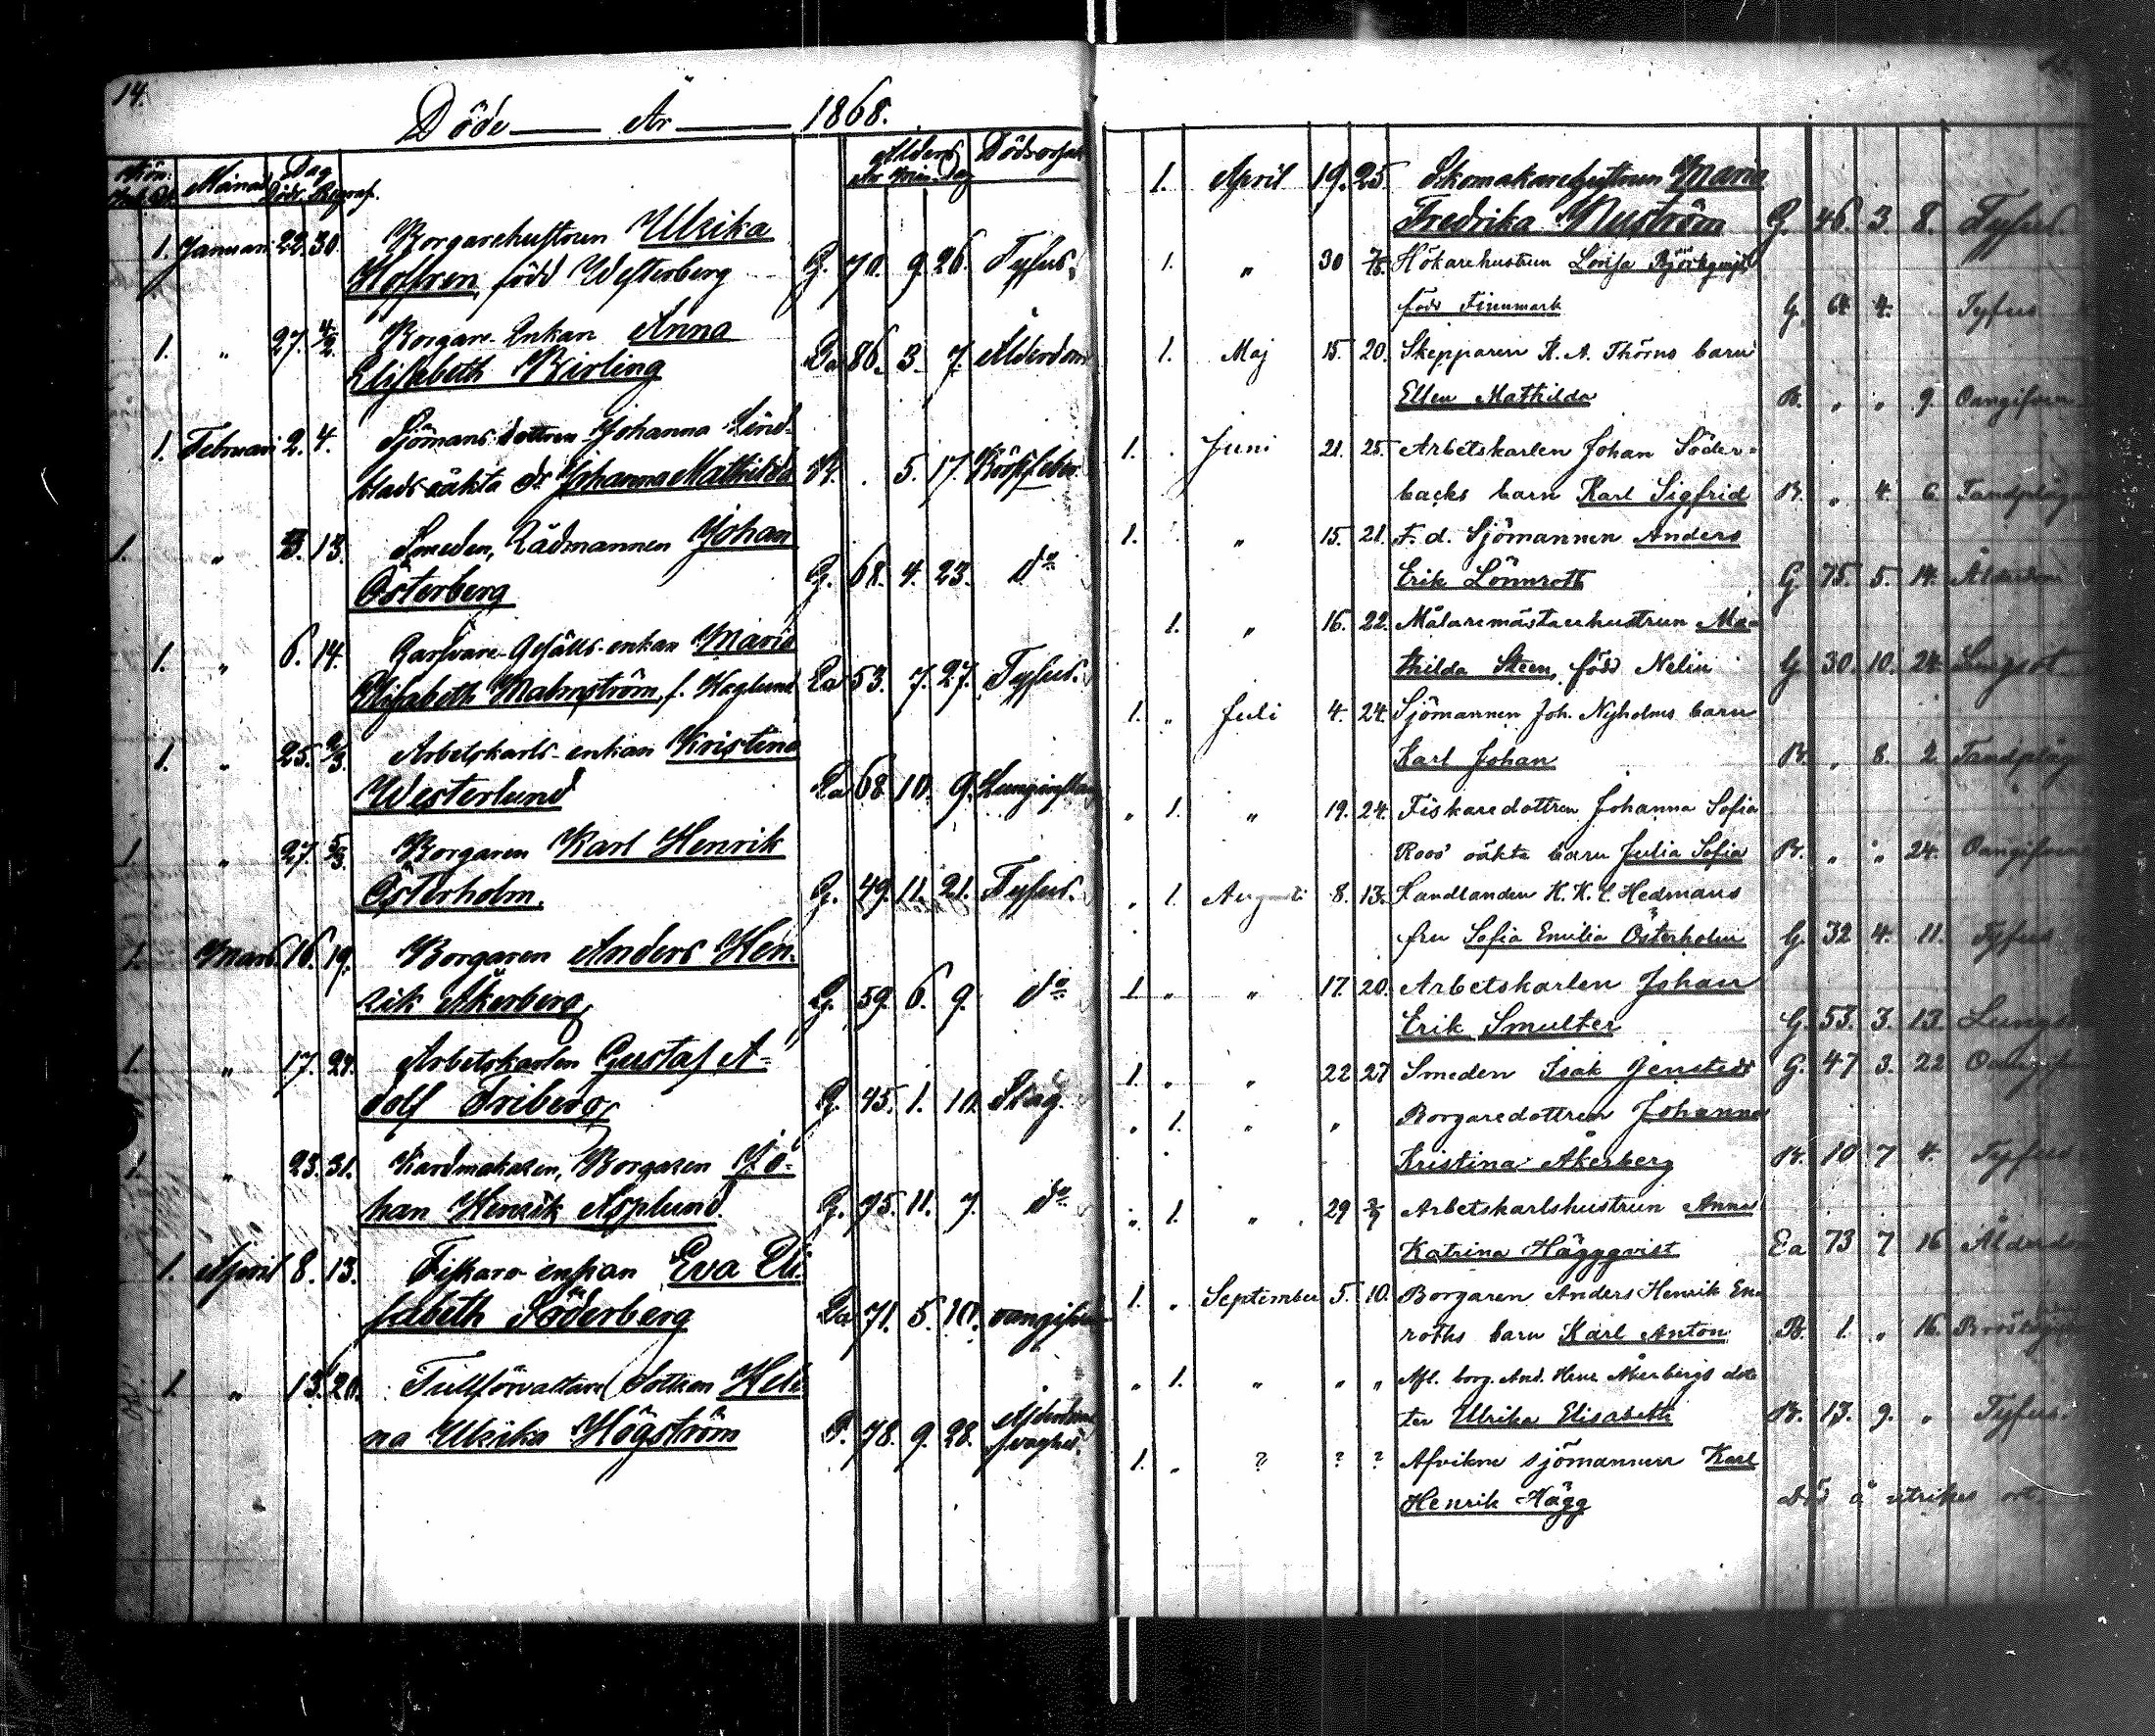 14.
Döde År 1868.
Kön: Månad Dag Ålder Dödsorsak
Död. Begraf. År Mån. Dag
1. Januari 22. 30. Borgarehustrun Ulrika
Hoffren, född Westerberg G. 70. 9. 26. Tyfus.
1. " 27. 4/2. Borgare-Enkan Anna
Elisabeth Kirling Ea 86. 3. 7. Ålderdom
1. Februari 2. 4. Sjömans dottren Johanna Lind-
blads oäkta dr Johanna Mathilda B. . 5. 17. Bröstfeber
1. " 13. Smeden, Rådmannen Johan
Österberg G. 68. 4. 23. do
1. " 6. 14. Garfvare-Gesälls-enkan Maria
Elisabeth Malmström, f. Haglund Ea 53. 7. 27. Tyfus.
1. " 25. 2/3. Arbetskarls-enkan Kristina
Westerlund Ea 68. 10. 9. Lunginflam
1. " 27. 5/3. Borgaren Karl Henrik
Österholm. G. 49. 11. 21. Tyfus.
1. Mars. 16. 19. Borgaren Anders Hen-
rik Åkerberg G. 59. 6. 9. do
1. " 17. 24. Arbetskarlen Gustaf A-
dolf Friberg G. 45. 1. 10. Slag.
1. " 23. 31. Kardmakaren, Borgaren Jo-
han Henrik Asplund. G. 75. 11. 7. do
1. April 8. 13. Fiskare enkan Eva Eli-
sabeth Söderberg Ea 71. 5. 10. oangifven
1. " 13. 20. Tullförvaltare dottren Hele
na Ulrika Högström O. 78. 9. 28. Ålderdoms
svaghet.
1. April 19. 25. Skomakarehustrun Maria
Fredrika Nuström G. 46. 3. 8. Tyfus.
1. " 30 7/5. Hökarehustrun Lovisa Björkqvist
född Finnmark G. 64. 4. Tyfus
1. Maj 15. 20. Skepparen K. A. Thörns barn
Ellen Mathilda B. " " 9. Oangifven
1. Juni 21. 25. Arbetskarlen Johan Söder-
backs barn Karl Sigfrid B. " 4. 6. Tandplåga
1. " 15. 21. F. d. Sjömannen Anders
Erik Lönnroth G 75. 5. 14. Ålderdom
1. " 16. 22. Målaremästarehustrun Ma-
thilda Steen, född Nelin G 30. 10. 24. Lungsot
1. " Juli 4. 24. Sjömannen Joh. Nyholms barn
Karl Johan B. " 8. 2 Tandplåg
" 1. " 19. 24. Fiskaredottren Johanna Sofia
Roos' oäkta barn Julia Sofia B. " " 24. Oangifven
" 1. Augusti 8. 13. Handlanden K. K. E. Hedmans
fru Sofia Emilia Österholm G. 32 4. 11. Tyfus
1. " " 17. 20. Arbetskarlen Johan
Erik Smulter G. 53. 3. 13 Lungs
1. " " 22 27 Smeden Isak Jenstedt G. 47 3. 22 Oangif
" 1. " " Borgaredottren Johanna
Kristina Åkerberg B. 10 7 4. Tyfus
" 1. " 29 2/9 Arbetskarlshustrun Anna
Katrina Häggqvist Ea 73 7 16 Ålderdo
1. " September 5. 10. Borgaren Anders Henrik En-
roths barn Karl Anton B. 1. " 16.
" 1. " " " Afl. borg. And. Henr Åkerbergs dot
ter Ulrika Elisabeth B. 13. 9. " Tyfus.
1. " ? ? ? Afvikne sjömannen Karl
Henrik Hägg Död å utrikes ort.